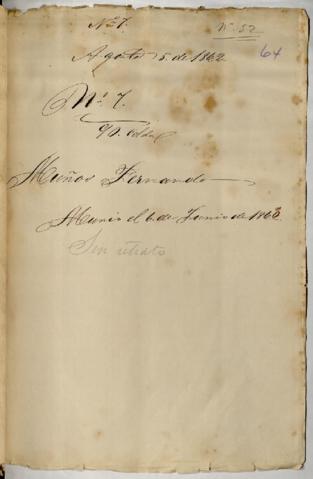 Nº 7.
Nº 52
64
Agosto 5 de 1862
Nº 7.
Muñoz Fernando
Murio el 6 de Junio de 1868
Sin retrato